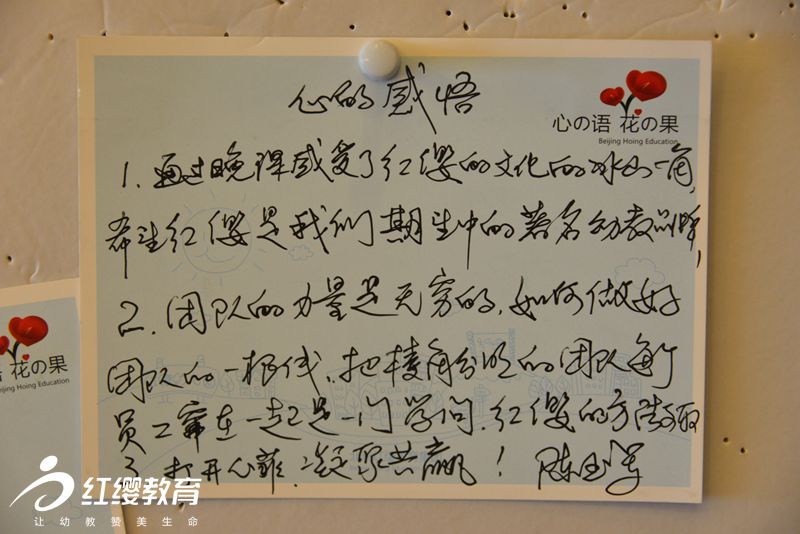 心的感悟
心の语 花の果
Beijing Hoing Education
1. 通过晚课感受了红缨的文化的冰山一角,
希望红缨是我们期望中的著名幼教品牌,
2. 团队的力量是无穷的, 如何做好
团队的一根线, 把棱角分明的团队每个
员工牵在一起是一门学问, 红缨的方法
3. 打开心, 凝聚共赢! 陈
语 花の果
Beijing Hoing Education
红缨教育
让幼教赞美生命